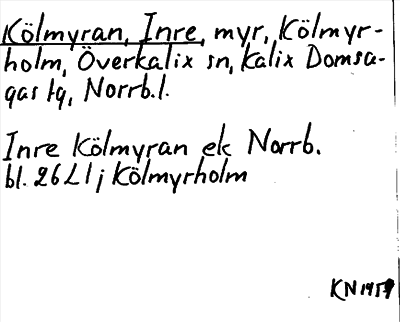 Kölmyran, Inre, myr, Kölmyr-
holm, Överkalix sn, Kalix Domsa-
gas tg, Norrb.l.
Inre Kölmyran ek Norrb.
bl. 26 L1 j Kölmyrholm
KN 1959